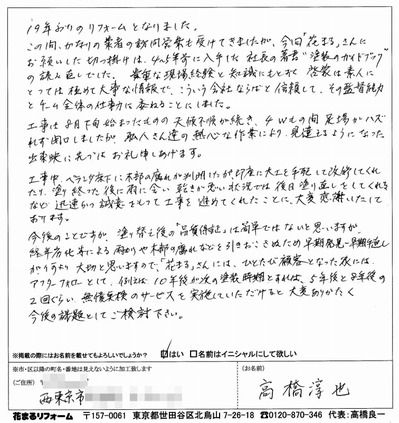 19年ぶりのリフォームとなりました。
この間、かなりの業者の訪問営業も受けてきましたが、今回「花まる」さんに
お願いした切っ掛けは、4~5年前に入手した社長の著書"塗装のガイドブック"
の読み返しでした。貴重な現場経験と知識にもとづく啓蒙は素人に
とっては極めて大事な情報で、こういう会社ならばと信頼して、その監督能力
とチーム全体の仕事力に委ねることにしました。
工事は8月下旬始まったものの天候不順が続き、4Wもの間足場がハズ
れず困りましたが、職人さん達の熱心な作業により、見違えるようになった
出来映に先づはお礼申しあげます。
工事中、ベランダ床下に木部の腐れが判明したが即座に大工を手配して改修してくれ
たり、塗り終った後に雨に会い乾きが悪い状況では後日塗り直しをしてくれる
など迅速かつ誠意をもって工事を進めてくれたことに、大変感謝いたして
おります。
今後のことですが、塗り替え後の"品質保証"は簡単ではないと思いますが、
経年劣化等による雨もりや木部の腐れなどを引きおこさぬための早期発見・早期手直し
がなりより大切と思いますので、「花まる」さんには、ひとたび顧客となった夜には、
アフターフォローとして、例えば10年後が次の塗装時期とすれば、5年後と8年後の
2回ぐらい無償点検のサービスを実施していただけると大変ありがたく
今後の課題としてご検討下さい。
※掲載の際にはお名前を載せてもよろしいでしょうか? ☑はい □名前はイニシャルにして欲しい
※市・区以降の町名・番地は見えないように加工致します
(ご住所)
西東京市
(お名前)
高橋淳也
花まるリフォーム 〒157-0061 東京都世田谷区北烏山7-26-18 ☎0120-870-346 代表:高橋良一